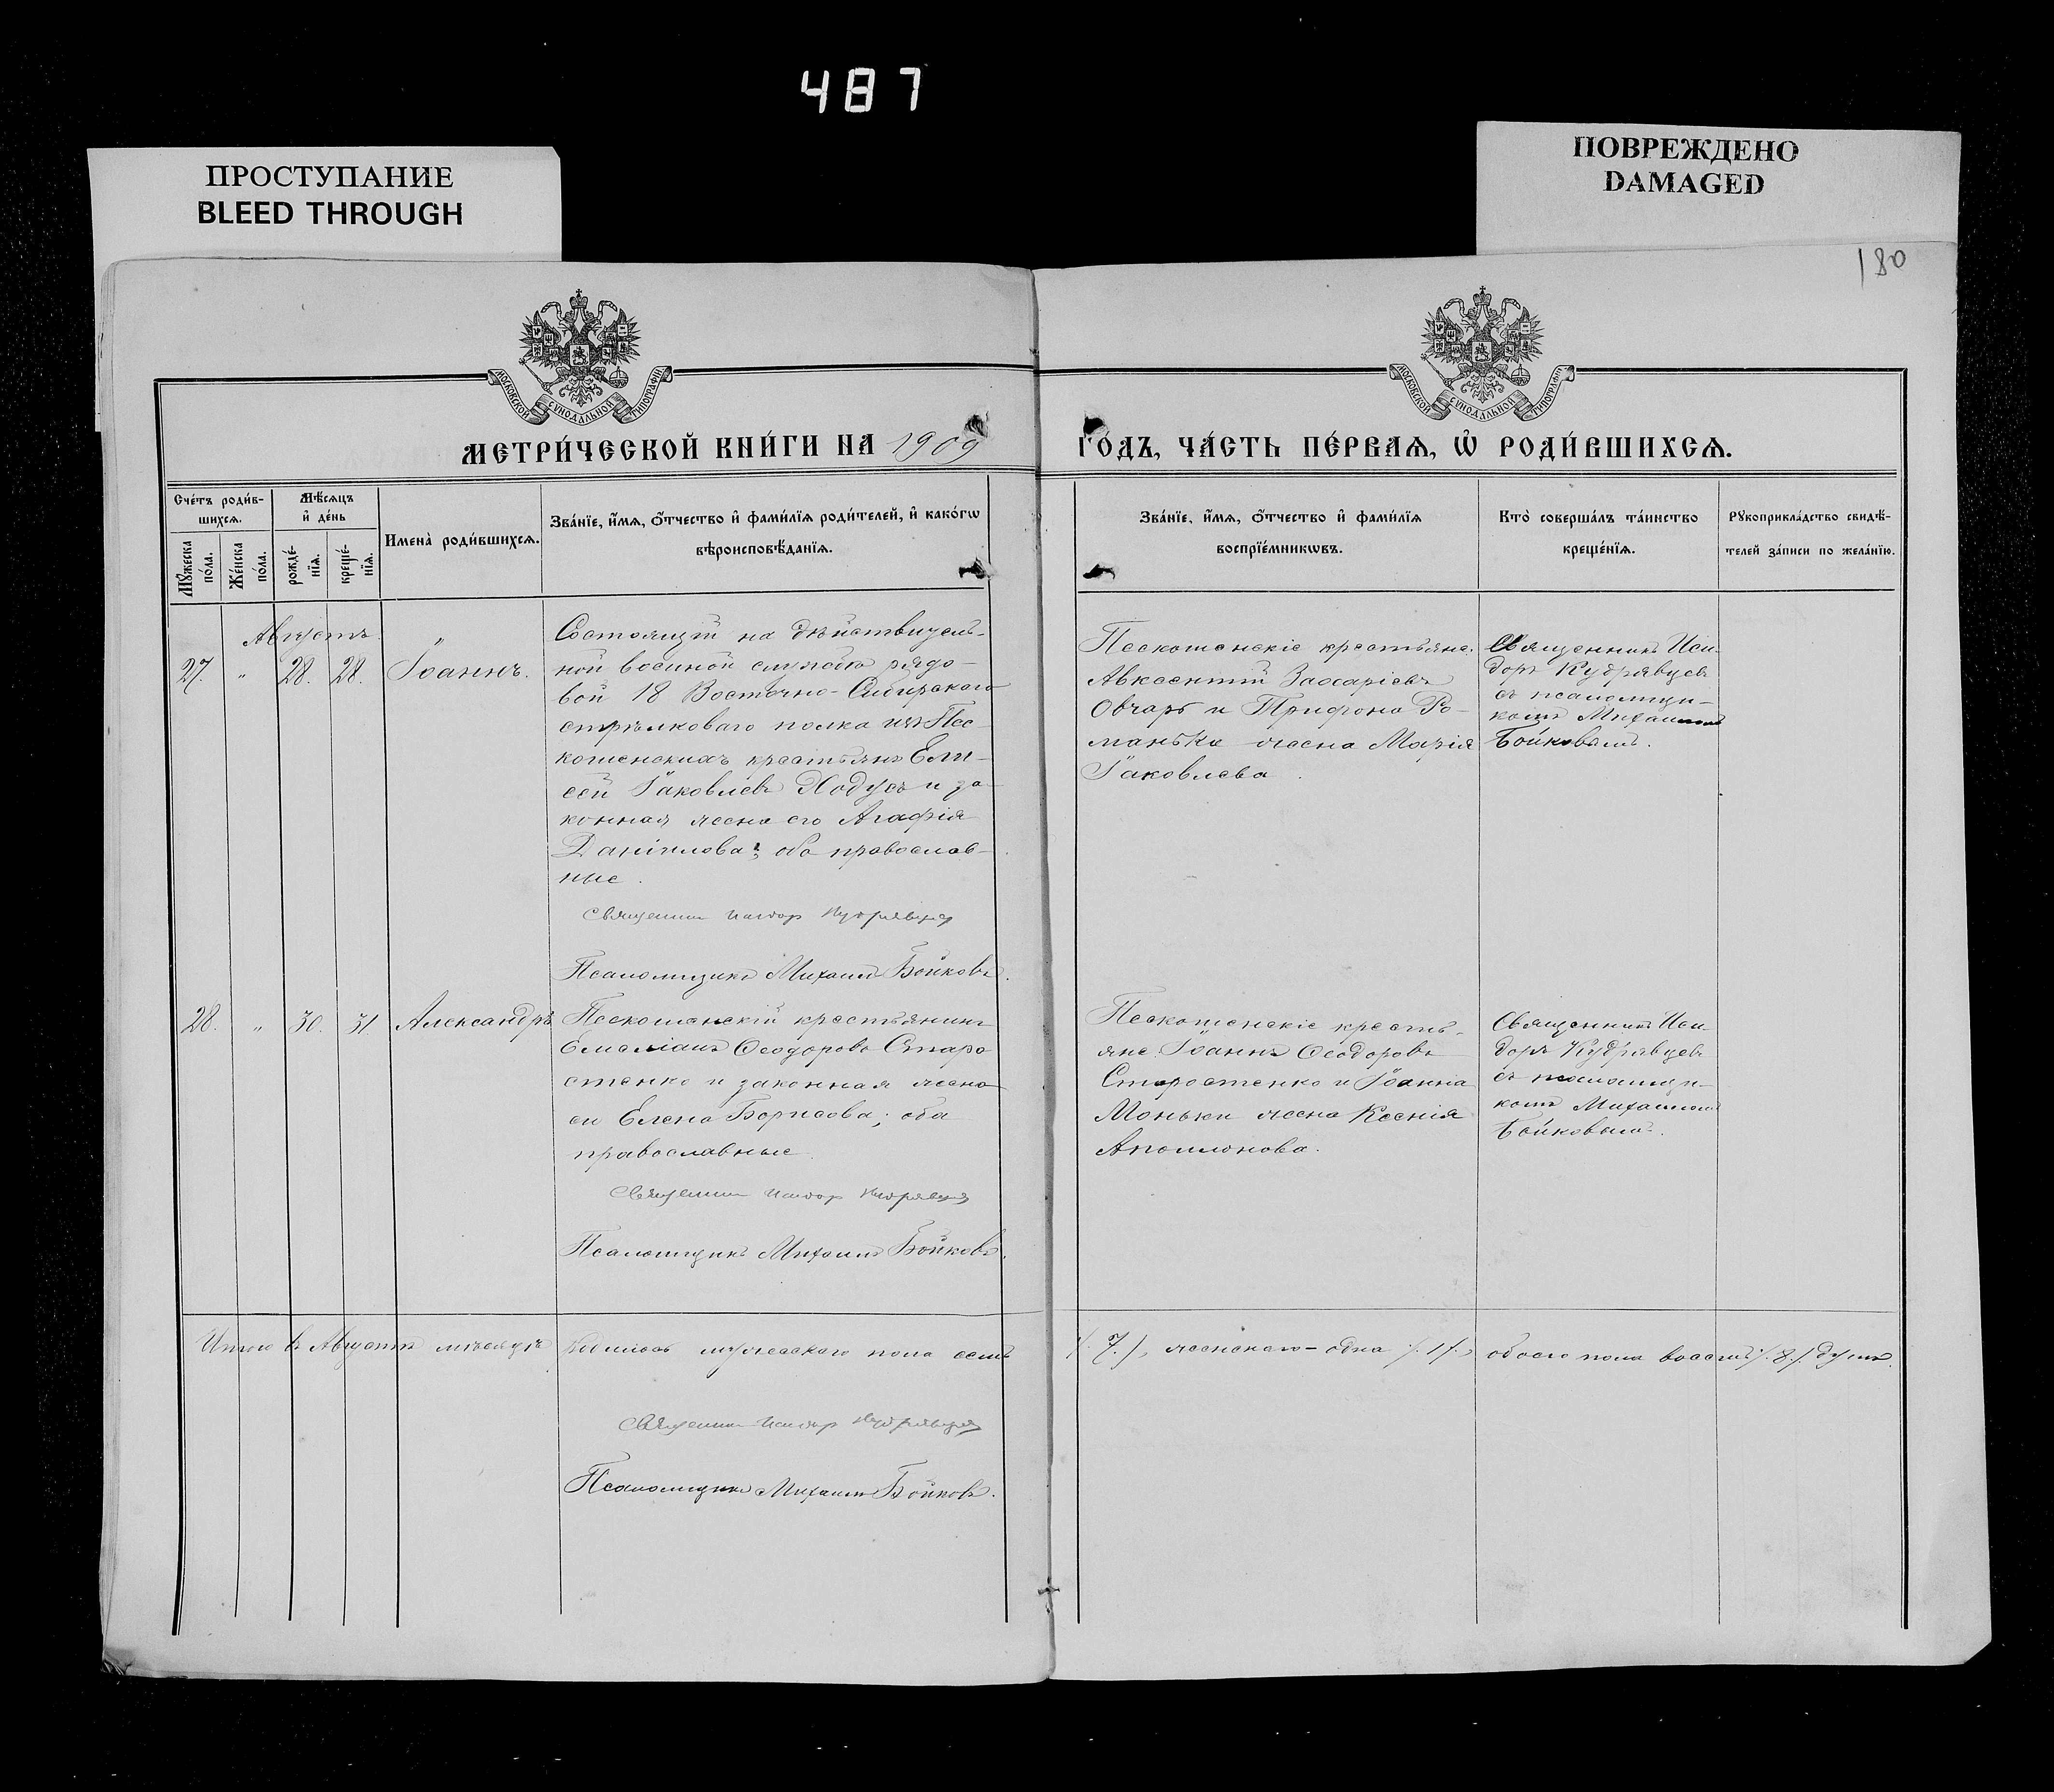 487
ПРОСТУПАНИЕ
BLEED THROUGH
ПОВРЕЖДЕНО
DAMAGED
180
МОСКОВСКОЙ СѴНОДАЛЬНОЙ ТИПОГРАФІИ
МОСКОВСКОЙ СѴНОДАЛЬНОЙ ТИПОГРАФІИ
МЕТРИ́ЧЕСКОЙ КНИ́ГИ НА 1909
ГО́ДЪ, ЧА́СТЬ ПЕ́РВАѦ, Ѡ҆ РОДИ́ВШИХСѦ.
Сче́тъ роди́в-
шихсѧ.
Мꙋ́жеска
по́ла.
Же́нска
по́ла.
Мѣ́сѧцъ
и҆ де́нь
рожде́-
нїѧ.
креще́-
нїѧ.
Имена̀ роди́вшихсѧ.
Зва́нїе, и҆́мѧ, ѻ҆́тчество и҆ фами́лїѧ роди́телей, и҆ како́гѡ
вѣроисповѣ́данїѧ.
Зва́нїе, и҆́мѧ, ѻ҆́тчество и҆ фами́лїѧ
воспрїе́мникѡвъ.
Кто̀ соверша́лъ та́инство
креще́нїѧ.
Рꙋкоприкла́дство свидѣ́-
телей за́писи по жела́нїю.
Августъ.
27. " 28. 28. Іоаннъ.
Состоящій на дѣйствитель-
ной военной службѣ рядо-
вой 18 Восточно-Сибирскаго
стрѣлковаго полка изъ Пес-
кошенскихъ крестьянъ Ели-
сей Іаковлевъ Ходусъ и за-
конная жена его Агафія
Даніилова; оба православ-
ные.
Священник Исидор Кудрявцев
Псаломщикъ Михаилъ Бойковъ.
Пескошенскіе крестьяне:
Авксентій Захаріевъ
Овчаръ и Трифона Ро-
манька жена Марія
Іаковлева.
Священникъ Иси-
доръ Кудрявцевъ
съ псаломщи-
комъ Михаиломъ
Бойковымъ.
28. " 30. 31 Александръ
Пескошенскій крестьянинъ
Емеліанъ Ѳеодоровъ Старо
стенко и законная жена
его Елена Борисова; оба
православные.
Священник Исидор Кудрявцев
Псаломщикъ Михаилъ Бойковъ.
Пескошенскіе кресть-
яне Іоаннъ Ѳеодоровъ
Старостенко и Іоанна
Моньки жена Ксенія
Аполлонова.
Священникъ Иси
доръ Кудрявцевъ
съ псаломщи-
комъ Михаиломъ
Бойковымъ.
Итого въ Августѣ мѣсяцѣ родилось мужескаго пола семь /. 7. /, женскаго - одна /. 1 /., обоего пола восемь /. 8. /. душъ.
Священник Исидор Кудрявцев
Псаломщикъ Михаилъ Бойковъ.